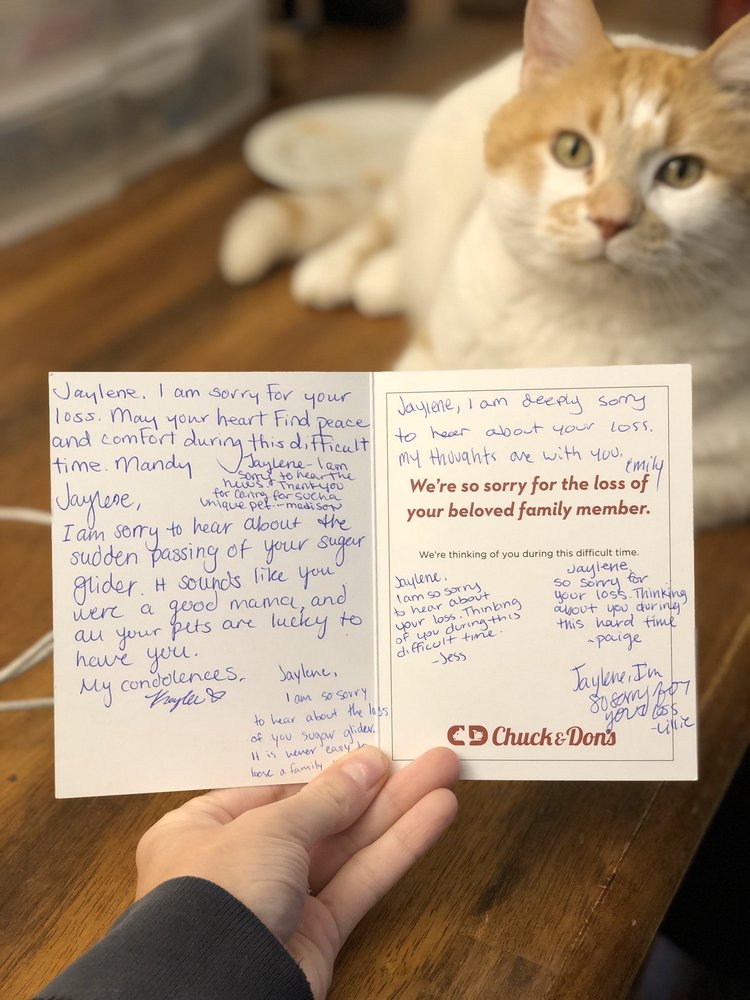 Jaylene, I am sorry for your
loss. May your heart find peace
and comfort during this difficult
time. Mandy
Jaylene - I am
sorry to hear the
news. Thank you
for caring for such a
unique pet. - madison
Jaylene,
I am sorry to hear about the
sudden passing of your sugar
glider. It sounds like you
were a good mama, and
all your pets are lucky to
have you.
My condolences.
Jaylene,
I am so sorry
to hear about the loss
of you sugar glider.
It is never easy to
loose a family
Jaylene, I am deeply sorry
to hear about your loss.
My thoughts are with you.
Emily
We're so sorry for the loss of
your beloved family member.
We're thinking of you during this difficult time.
Jaylene,
I am so sorry
to hear about
your loss. Thinking
of you during this
difficult time.
-Jess
Jaylene,
so sorry for
your loss. Thinking
about you during
this hard time
~paige
Jaylene, I'm
so sorry for
your loss
-Lillie
CD Chuck & Don's